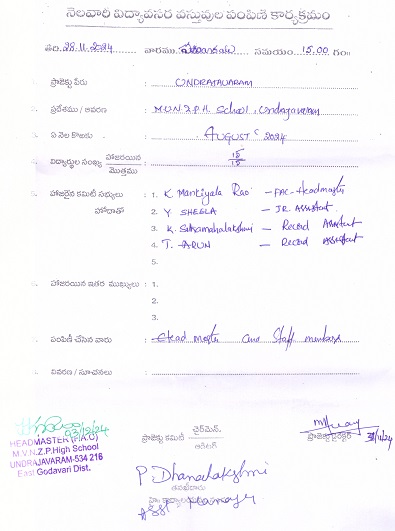 నెలవారి విద్యావసర వస్తువుల పంపిణి కార్యక్రమం
తేది. 28.11.2024 వారము సమయం 15.00 గం॥
ప్రాజెక్టు పేరు : UNDRAJAVARAM
ప్రదేశము / ఆవరణ : M.V.N.Z.P.H. School, Undrajavaram
ఏ నెల కొఱకు : AUGUST 2024
విద్యార్థుల సంఖ్య హాజరయిన / మొత్తము : 15 / 15
హాజరైన కమిటీ సభ్యులు : 1. K. Manikyala Rao - FAC-Headmaster
హోదాతో 2. Y SHEELA - JR. Assistant
3. K. Sitamahalakshmi - Record Assistant
4. T. ARUN - Record Assistant
5.
హాజరయిన ఇతర ముఖ్యులు : 1.
2.
3.
పంపిణీ చేసిన వారు : Head master and Staff members
వివరణ / సూచనలు :
03/12/24
HEADMASTER (F.A.C)
M.V.N.Z.P.High School
UNDRAJAVARAM-534 216
East Godavari Dist.
ప్రాజెక్టు కమిటీ ఛైర్మెన్.
ప్రాజెక్టు డైరెక్టర్
P Dhanalakshmi